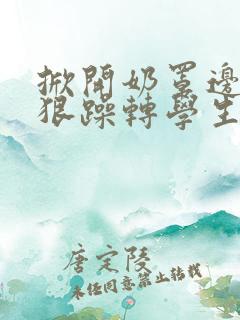 掀開奶罩邊
狠躁轉學生
唐定陵
未經同意禁止轉載